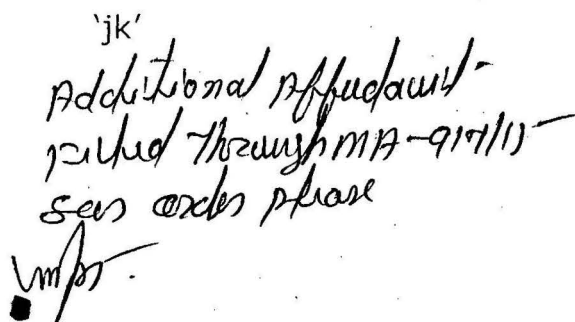 'jk'
Additional Affudavit-
filed through MA-917/11-
seen orders please